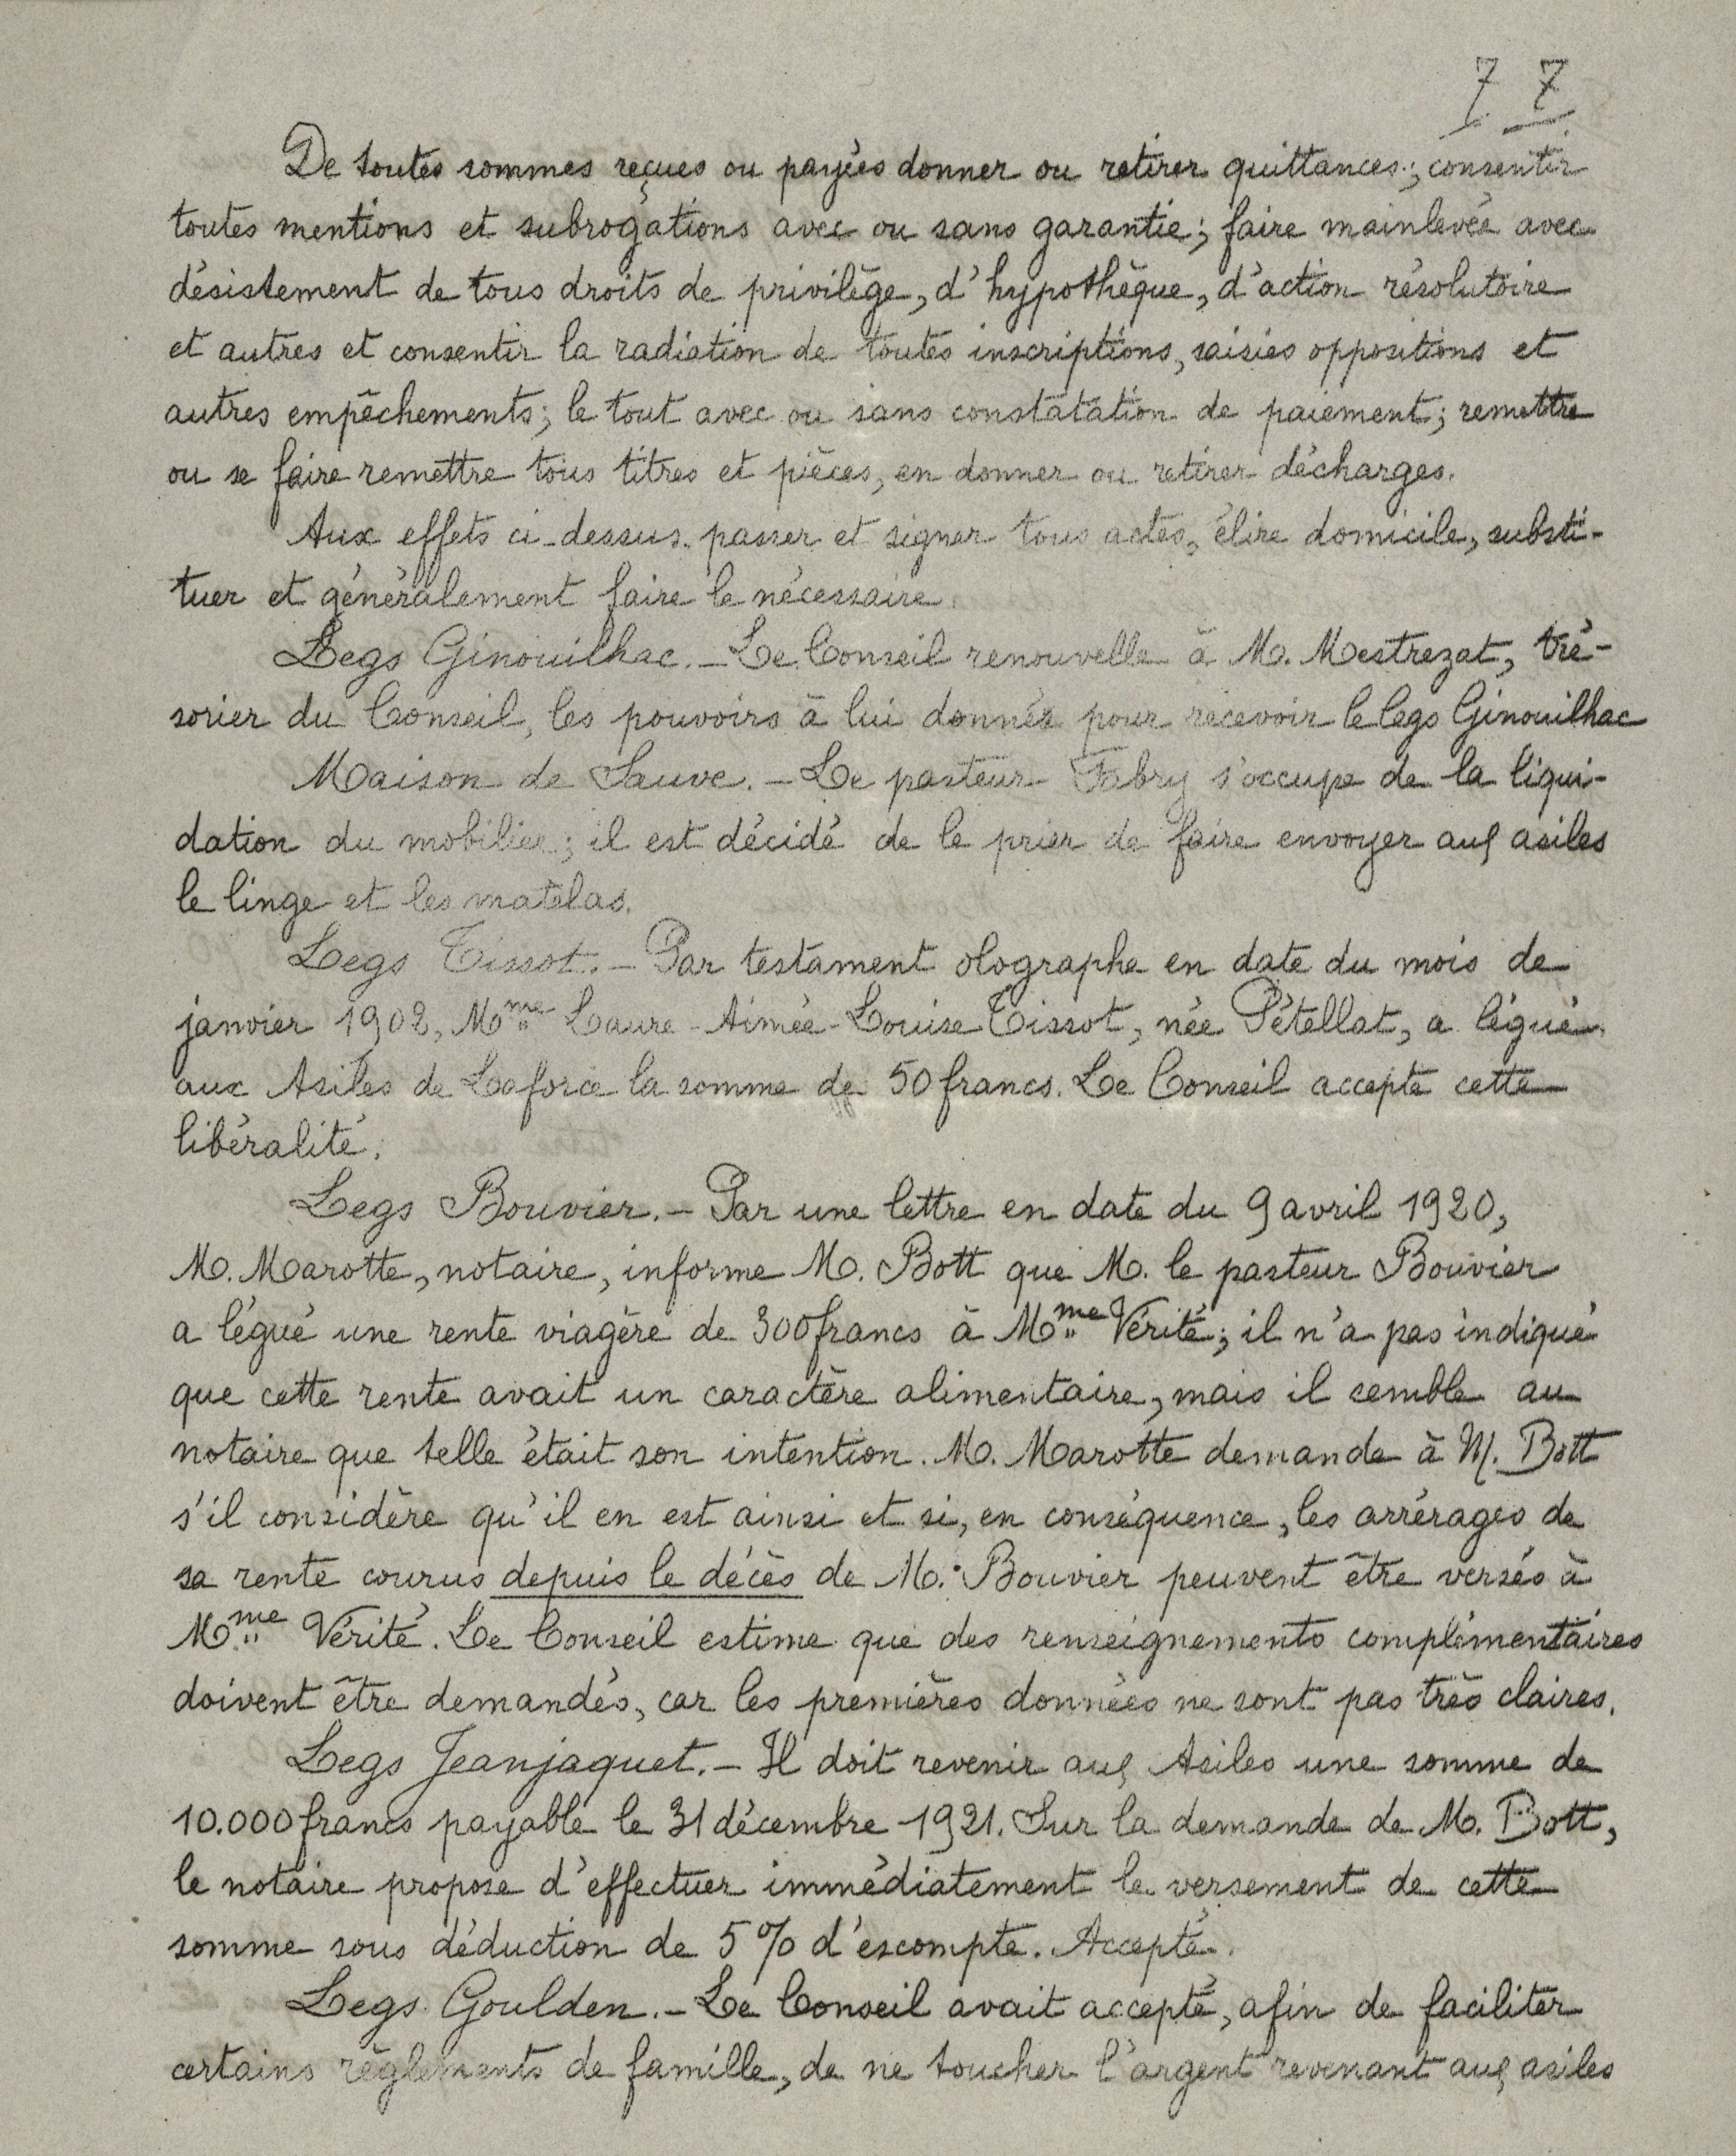 7 7
De toutes sommes reçues ou payées donner ou retirer quittances; consentir
toutes mentions et subrogations avec ou sans garantie; faire mainlevée avec
désistement de tous droits de privilège, d'hypothèque, d'action résolutoire
et autres et consentir la radiation de toutes inscriptions, saisies oppositions et
autres empêchements; le tout avec ou sans constatation de paiement; remettre
ou se faire remettre tous titres et pièces, en donner ou retirer décharges.
Aux effets ci-dessus passer et signer tous actes, élire domicile, substi-
tuer et généralement faire le nécessaire.
Legs Ginouilhac. - Le Conseil renouvelle à M. Mestrezat, tré-
sorier du Conseil, les pouvoirs à lui donnés pour recevoir le legs Ginouilhac
Maison de Sauve. - Le pasteur Fabry s'occupe de la liqui-
dation du mobilier; il est décidé de le prier de faire envoyer aux asiles
le linge et les matelas.
Legs Tissot. - Par testament olographe en date du mois de
janvier 1902, Mme Laure-Aimée-Louise Tissot, née Pétellat, a légué
aux Asiles de Laforce la somme de 50 francs. Le Conseil accepte cette
libéralité.
Legs Bouvier. - Par une lettre en date du 9 avril 1920,
M. Marotte, notaire, informe M. Bott que M. le pasteur Bouvier
a légué une rente viagère de 300 francs à Mme Vérité; il n'a pas indiqué
que cette rente avait un caractère alimentaire, mais il semble au
notaire que telle était son intention. M. Marotte demande à M. Bott
s'il considère qu'il en est ainsi et si, en conséquence, les arrérages de
sa rente courus depuis le décès de M. Bouvier peuvent être versés à
Mme Vérité. Le Conseil estime que des renseignements complémentaires
doivent être demandés, car les premières données ne sont pas très claires.
Legs Jeanjaquet. - Il doit revenir aux Asiles une somme de
10.000 francs payable le 31 décembre 1921. Sur la demande de M. Bott,
le notaire propose d'effectuer immédiatement le versement de cette
somme sous déduction de 5 % d'escompte. Accepté.
Legs Goulden. - Le Conseil avait accepté, afin de faciliter
certains règlements de famille, de ne toucher l'argent revenant aux asiles